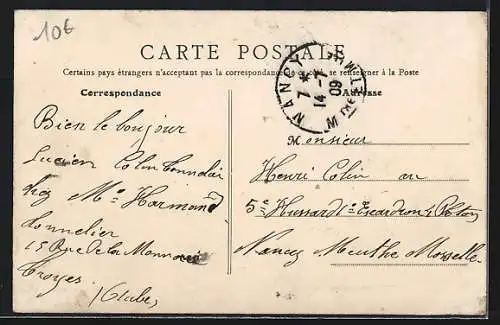 10€
CARTE POSTALE
Certains pays étrangers n'acceptant pas la correspondance se renseigner à la Poste
Correspondance
Adresse
NANCY
7
14 -7
09
Bien le bonjour
Lucien Colin Tonnelier
chez Mr Harmand
tonnelier
15 Rue de la Monnaie
Troyes
(Aube)
Monsieur
Henri Colin au
5e Hussard 1e Escadron
Nancy Meurthe Moselle